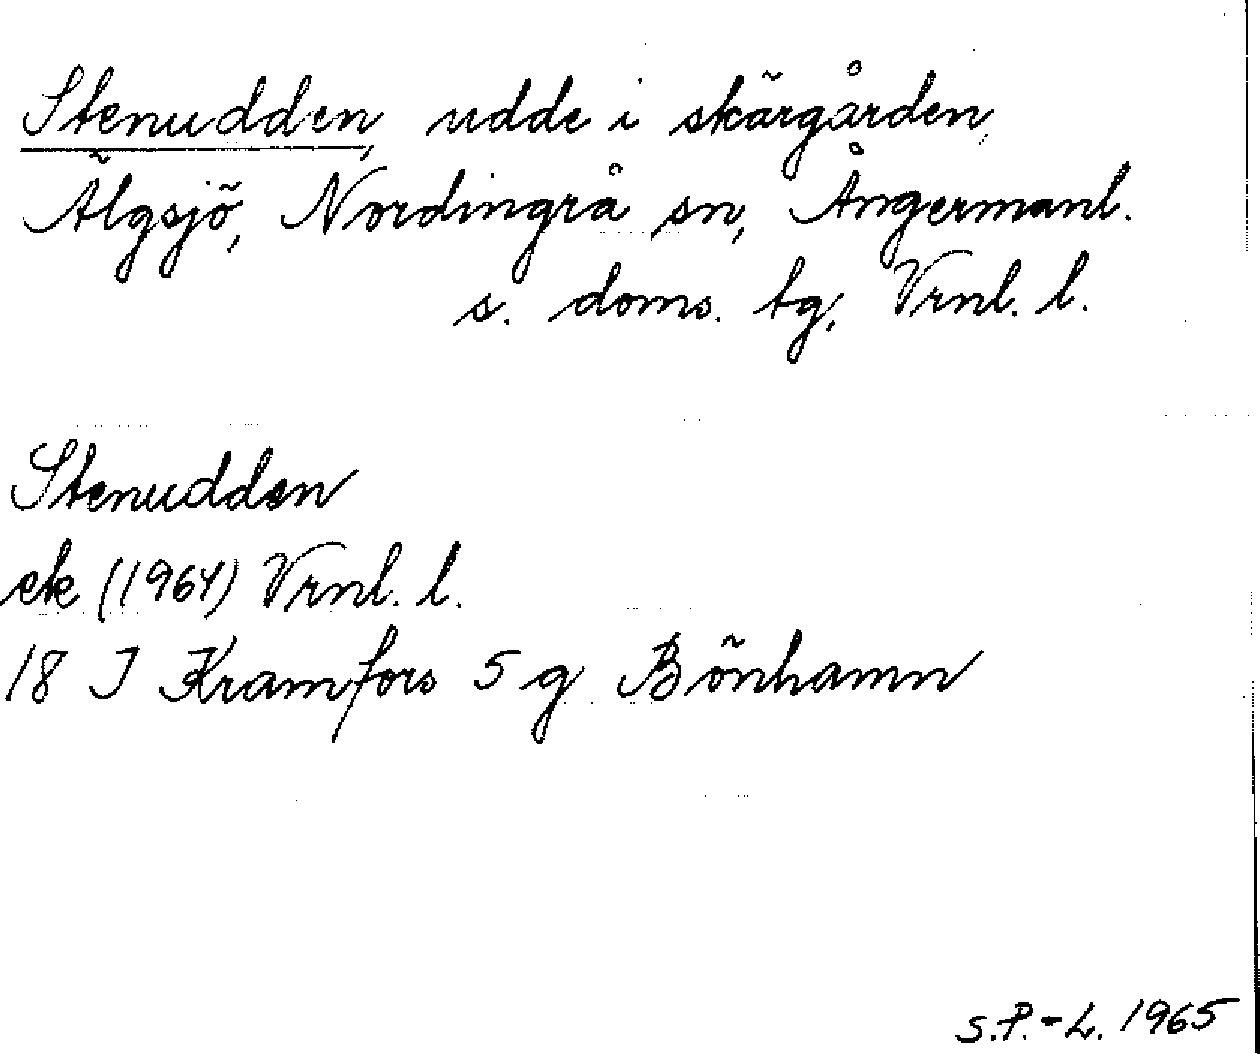 Stenudden, udde i skärgården,
Älgsjö, Nordingrå sn, Ångermanl.
s. doms. tg, Vrnl. l.
Stenudden
ek (1964) Vrnl. l.
18 J Kramfors 5 g Bönhamn
S.P.-L. 1965